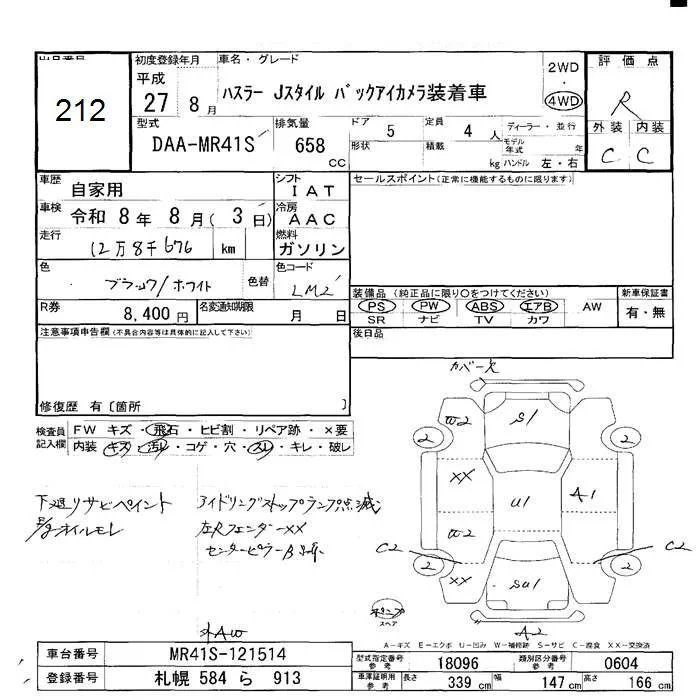 出品番号
212
初度登録年月
平成
27 年 8 月
車名・グレード
ハスラー Jスタイル バックアイカメラ装着車
2WD
・
4WD
評価点
R
外装 内装
C C
型式
DAA-MR41S
排気量
658
CC
ドア 5
定員 4 人
形状
積載 kg
ディーラー・並行
モデル年式 年
ハンドル 左・右
車歴 自家用
シフト IAT
車検 令和 8 年 8 月( 3 日)
冷房 AAC
走行 12万8千676 km
燃料 ガソリン
色 ブラック/ホワイト
色替
色コード LM2
R券 8,400 円
名変通知期限 月 日
セールスポイント(正常に機能するものに限ります)
装備品 (純正品に限り○をつけてください)
PS PW ABS エアB AW
SR ナビ TV カワ
新車保証書
有・無
後日品
注意事項申告欄(不具合内容等は具体的に記入して下さい)
修復歴 有〔箇所 〕
検査員記入欄
FW キズ・飛石・ヒビ割・リペア跡・×要
内装 キズ・汚れ・コゲ・穴・スレ・キレ・破レ
下廻りサビペイント
E/gオイルモレ
アイドリングストップランプ点滅
左Rフェンダーxx
センターピラーB
カバー欠
S1
W2
2
2
XX
U1
A1
W2
C2
C2
2
2
XX
SU1
スペア
A2
社外AW
A-キズ E-エクボ U-凹み W-補修跡 S-サビ C-腐食 XX-交換済
車台番号 MR41S-121514
登録番号 札幌 584 ら 913
型式指定番号 参考 18096
類別区分番号 参考 0604
車庫証明用 参考 長さ 339 cm 幅 147 cm 高さ 166 cm